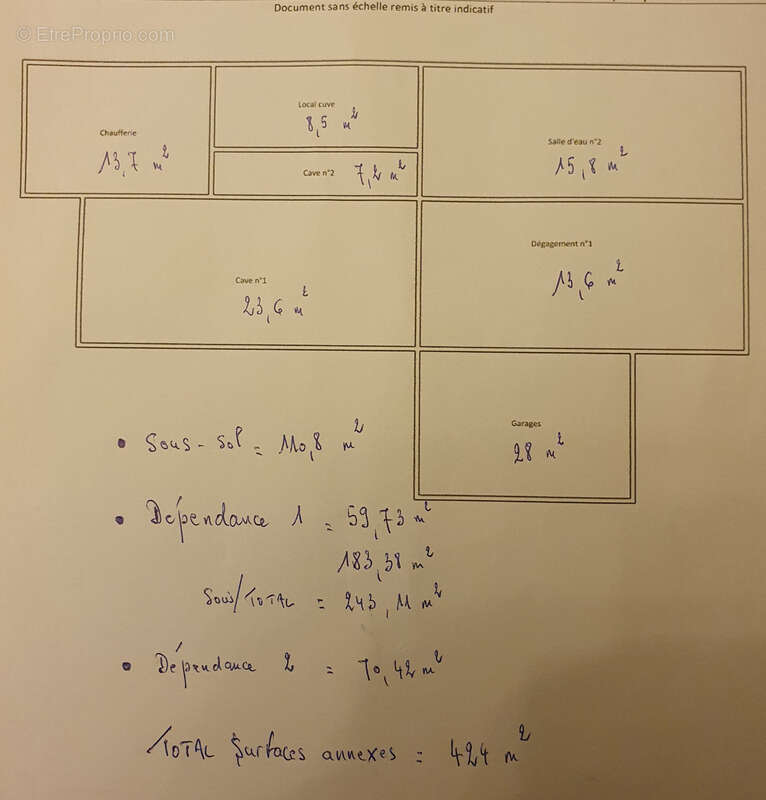 Document sans échelle remis à titre indicatif
© EtreProprio.com
Chaufferie
13,7 m²
Local cuve
8,5 m²
Cave n°2 7,2 m²
Salle d'eau n°2
15,8 m²
Cave n°1
23,6 m²
Dégagement n°1
13,6 m²
Garages
28 m²
• Sous-sol = 110,8 m²
• Dépendance 1 = 59,73 m²
183,38 m²
Sous/TOTAL = 243,11 m²
• Dépendance 2 = 70,42 m²
TOTAL Surfaces annexes = 424 m²